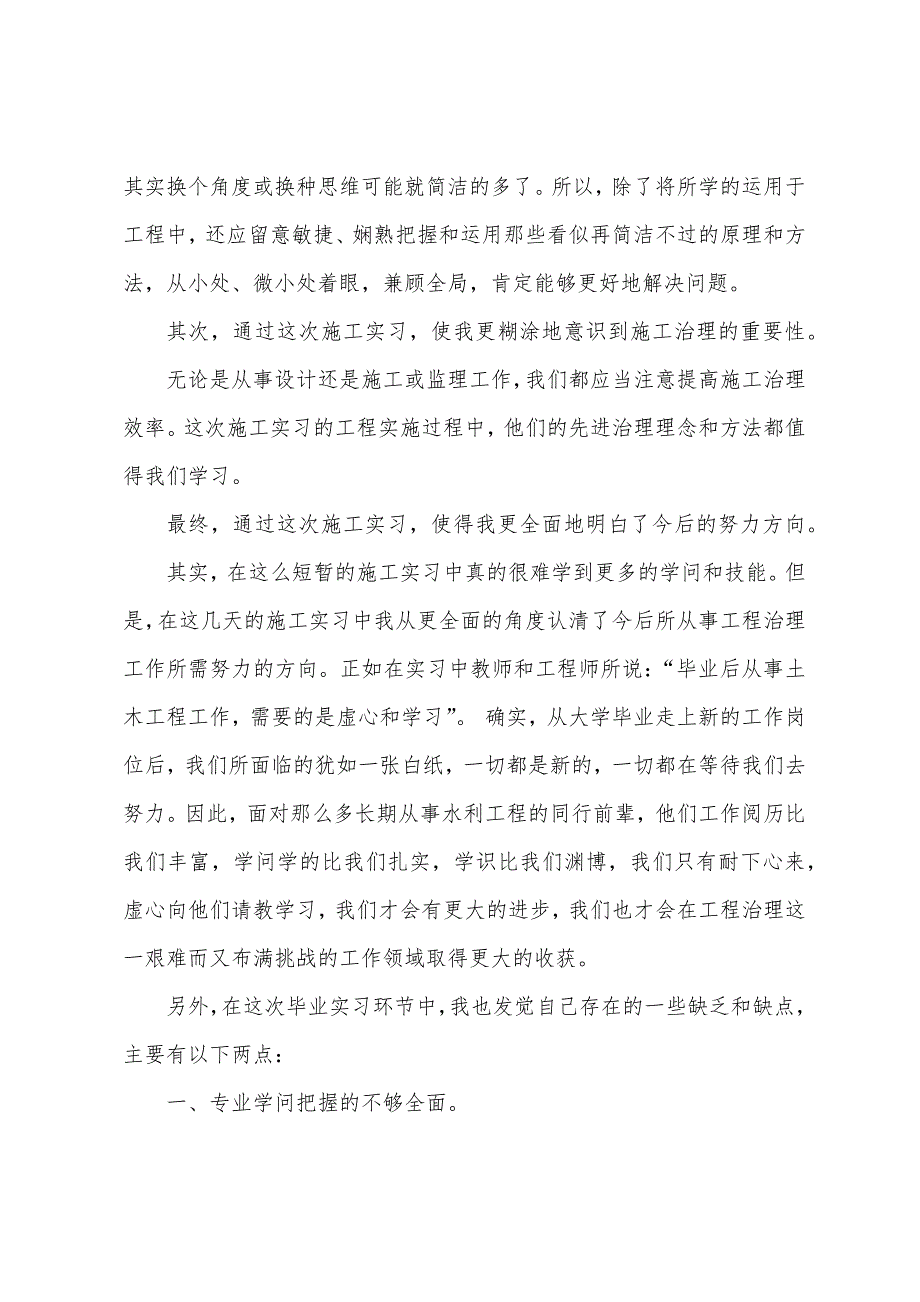 其实换个角度或换种思维可能就简洁的多了。所以，除了将所学的运用于
工程中，还应留意敏捷、娴熟把握和运用那些看似再简洁不过的原理和方
法，从小处、微小处着眼，兼顾全局，肯定能够更好地解决问题。
其次，通过这次施工实习，使我更糊涂地意识到施工治理的重要性。
无论是从事设计还是施工或监理工作，我们都应当注意提高施工治理
效率。这次施工实习的工程实施过程中，他们的先进治理理念和方法都值
得我们学习。
最终，通过这次施工实习，使得我更全面地明白了今后的努力方向。
其实，在这么短暂的施工实习中真的很难学到更多的学问和技能。但
是，在这几天的施工实习中我从更全面的角度认清了今后所从事工程治理
工作所需努力的方向。正如在实习中教师和工程师所说：“毕业后从事土
木工程工作，需要的是虚心和学习”。 确实，从大学毕业走上新的工作岗
位后，我们所面临的犹如一张白纸，一切都是新的，一切都在等待我们去
努力。因此，面对那么多长期从事水利工程的同行前辈，他们工作阅历比
我们丰富，学问学的比我们扎实，学识比我们渊博，我们只有耐下心来，
虚心向他们请教学习，我们才会有更大的进步，我们也才会在工程治理这
一艰难而又布满挑战的工作领域取得更大的收获。
另外，在这次毕业实习环节中，我也发觉自己存在的一些缺乏和缺点，
主要有以下两点：
一、专业学问把握的不够全面。